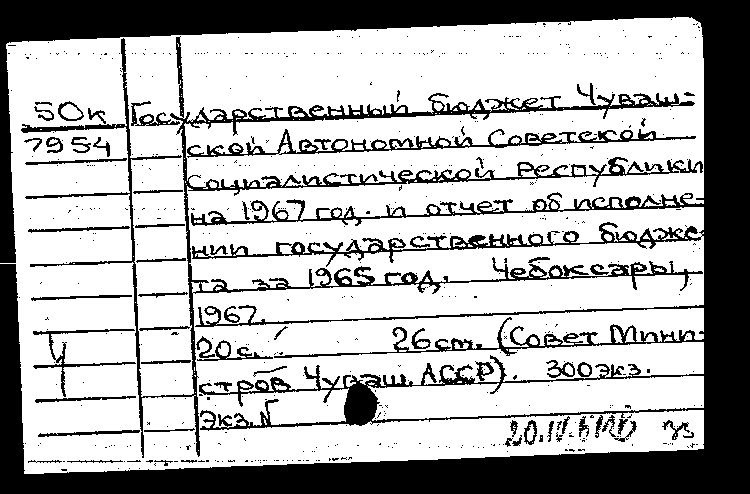 50к Государственный бюджет Чуваш=
7954 ской Автономной Советской
Социалистической Республики
на 1967 год. и отчет об исполне-
нии государственного бюдже-
та за 1965 год. Чебоксары,
1967.
20с. 26см. (Совет Мини-
стров Чуваш. АССР). 300экз.
Экз. N
Ч